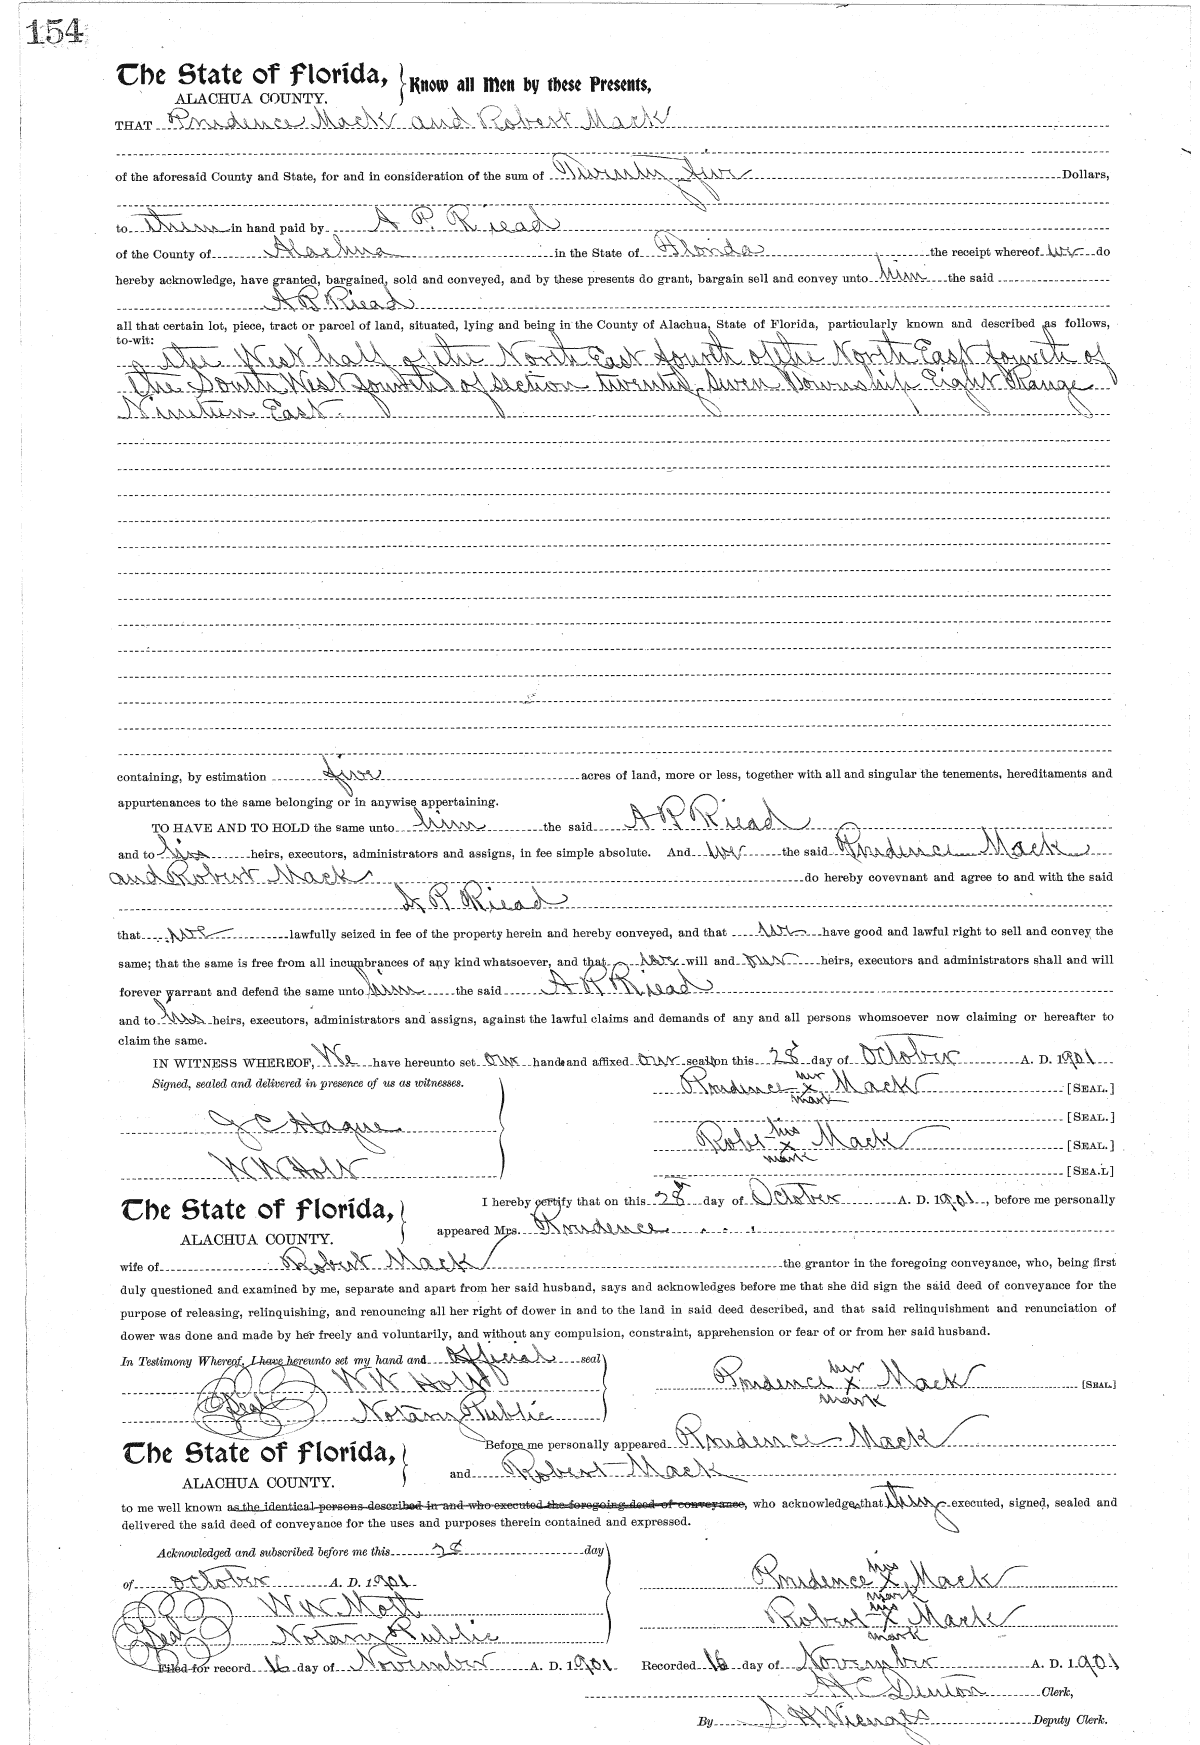 154
The State of Florida, Know all Men by these Presents,
ALACHUA COUNTY.
THAT Prudence Mack and Robert Mack
of the aforesaid County and State, for and in consideration of the sum of Twenty five Dollars,
to them in hand paid by A P. Riead
of the County of Alachua in the State of Florida the receipt whereof we do
hereby acknowledge, have granted, bargained, sold and conveyed, and by these presents do grant, bargain sell and convey unto him the said
A P Riead
all that certain lot, piece, tract or parcel of land, situated, lying and being in the County of Alachua, State of Florida, particularly known and described as follows,
to-wit:
the West half of the North East fourth of the North East fourth of
the South West fourth of section twenty seven Township Eight Range
Nineteen East.
containing, by estimation five acres of land, more or less, together with all and singular the tenements, hereditaments and
appurtenances to the same belonging or in anywise appertaining.
TO HAVE AND TO HOLD the same unto him the said A P Riead
and to his heirs, executors, administrators and assigns, in fee simple absolute. And we the said Prudence Mack
and Robert Mack do hereby covevnant and agree to and with the said
A P Riead
that we lawfully seized in fee of the property herein and hereby conveyed, and that we have good and lawful right to sell and convey the
same; that the same is free from all incumbrances of any kind whatsoever, and that we will and our heirs, executors and administrators shall and will
forever warrant and defend the same unto him the said A P Riead
and to his heirs, executors, administrators and assigns, against the lawful claims and demands of any and all persons whomsoever now claiming or hereafter to
claim the same.
IN WITNESS WHEREOF, We have hereunto set our hands and affixed our seals on this 28 day of October A. D. 1901
Signed, sealed and delivered in presence of us as witnesses.
Prudence her x mark Mack [SEAL.]
[SEAL.]
J C Hague
Robt his x mark Mack [SEAL.]
W W Holt
[SEA.L]
The State of Florida, I hereby certify that on this 28 day of October A. D. 1901, before me personally
ALACHUA COUNTY. appeared Mrs. Prudence
wife of Robert Mack the grantor in the foregoing conveyance, who, being first
duly questioned and examined by me, separate and apart from her said husband, says and acknowledges before me that she did sign the said deed of conveyance for the
purpose of releasing, relinquishing, and renouncing all her right of dower in and to the land in said deed described, and that said relinquishment and renunciation of
dower was done and made by her freely and voluntarily, and without any compulsion, constraint, apprehension or fear of or from her said husband.
In Testimony Whereof, I have hereunto set my hand and official seal
W W Holt Prudence her x mark Mack [SEAL]
Seal Notary Public
The State of Florida, Before me personally appeared Prudence Mack
ALACHUA COUNTY. and Robert Mack
to me well known as the identical persons described in and who executed the foregoing deed of conveyance, who acknowledge that they executed, signed, sealed and
delivered the said deed of conveyance for the uses and purposes therein contained and expressed.
Acknowledged and subscribed before me this 28 day
of October A. D. 1901 Prudence his x mark Mack
W W Holt
Robert his x mark Mack
Seal Notary Public
Filed for record 16 day of November A. D. 1901 Recorded 16 day of November A. D. 1901
H C Denton Clerk,
By Deputy Clerk.